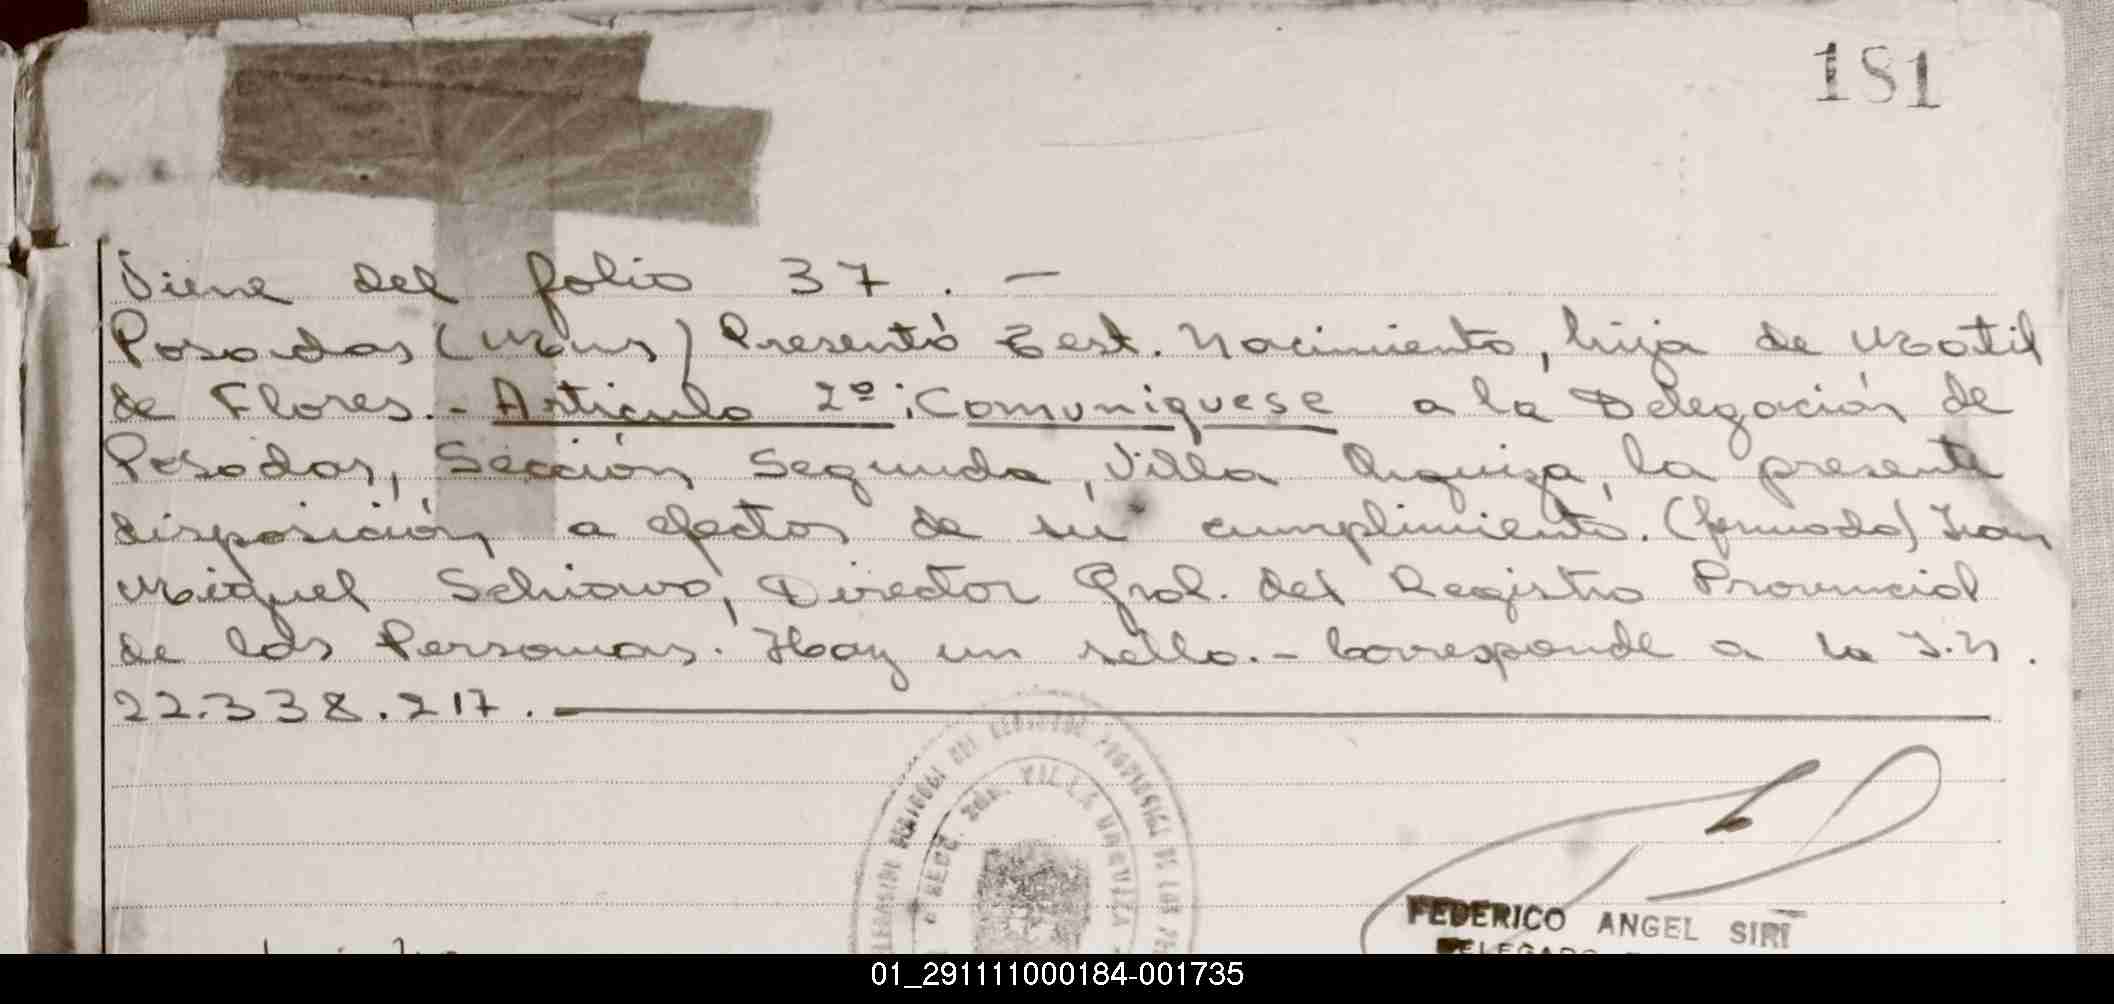 181
Viene del folio 37. —
Posadas (Mnes) Presentó Cert. Nacimiento, hija de Matil
de Flores.- Artículo 2º: Comuníquese a la Delegación de
Posadas, Sección Segunda, Villa Urquiza, la presente
disposición a efectos de su cumplimiento. (firmado) Juan
Miguel Schiavo, Director Gral. del Registro Provincial
de las Personas. Hay un sello.- Corresponde a la I.N.
22.338.217.
DEL REGISTRO PROVINCIAL DE LAS
SECC. 2DA. VILLA URQUIZA
FEDERICO ANGEL SIRI
DELEGADO
01_291111000184-001735